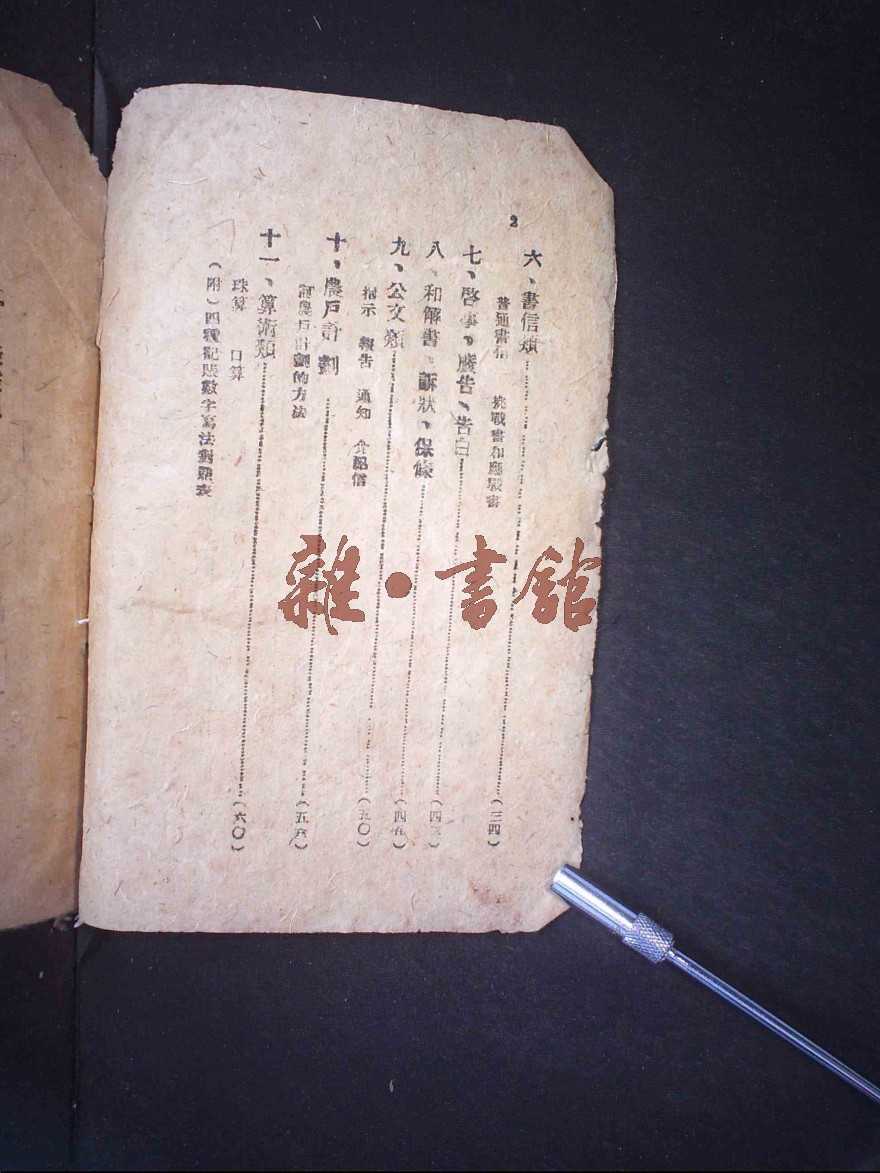 2
六、書信類……(三四)
普通書信　挑戰書和應戰書
七、啓事、廣告、告白……(四三)
八、和解書、訴狀、保條……(四五)
九、公文類……(五〇)
指示　報告　通知　介紹信
十、農戶計劃……(五六)
訂農戶計劃的方法
十一、算術類……(六〇)
珠算　口算
(附)四種記賬數字寫法對照表
雜·書館